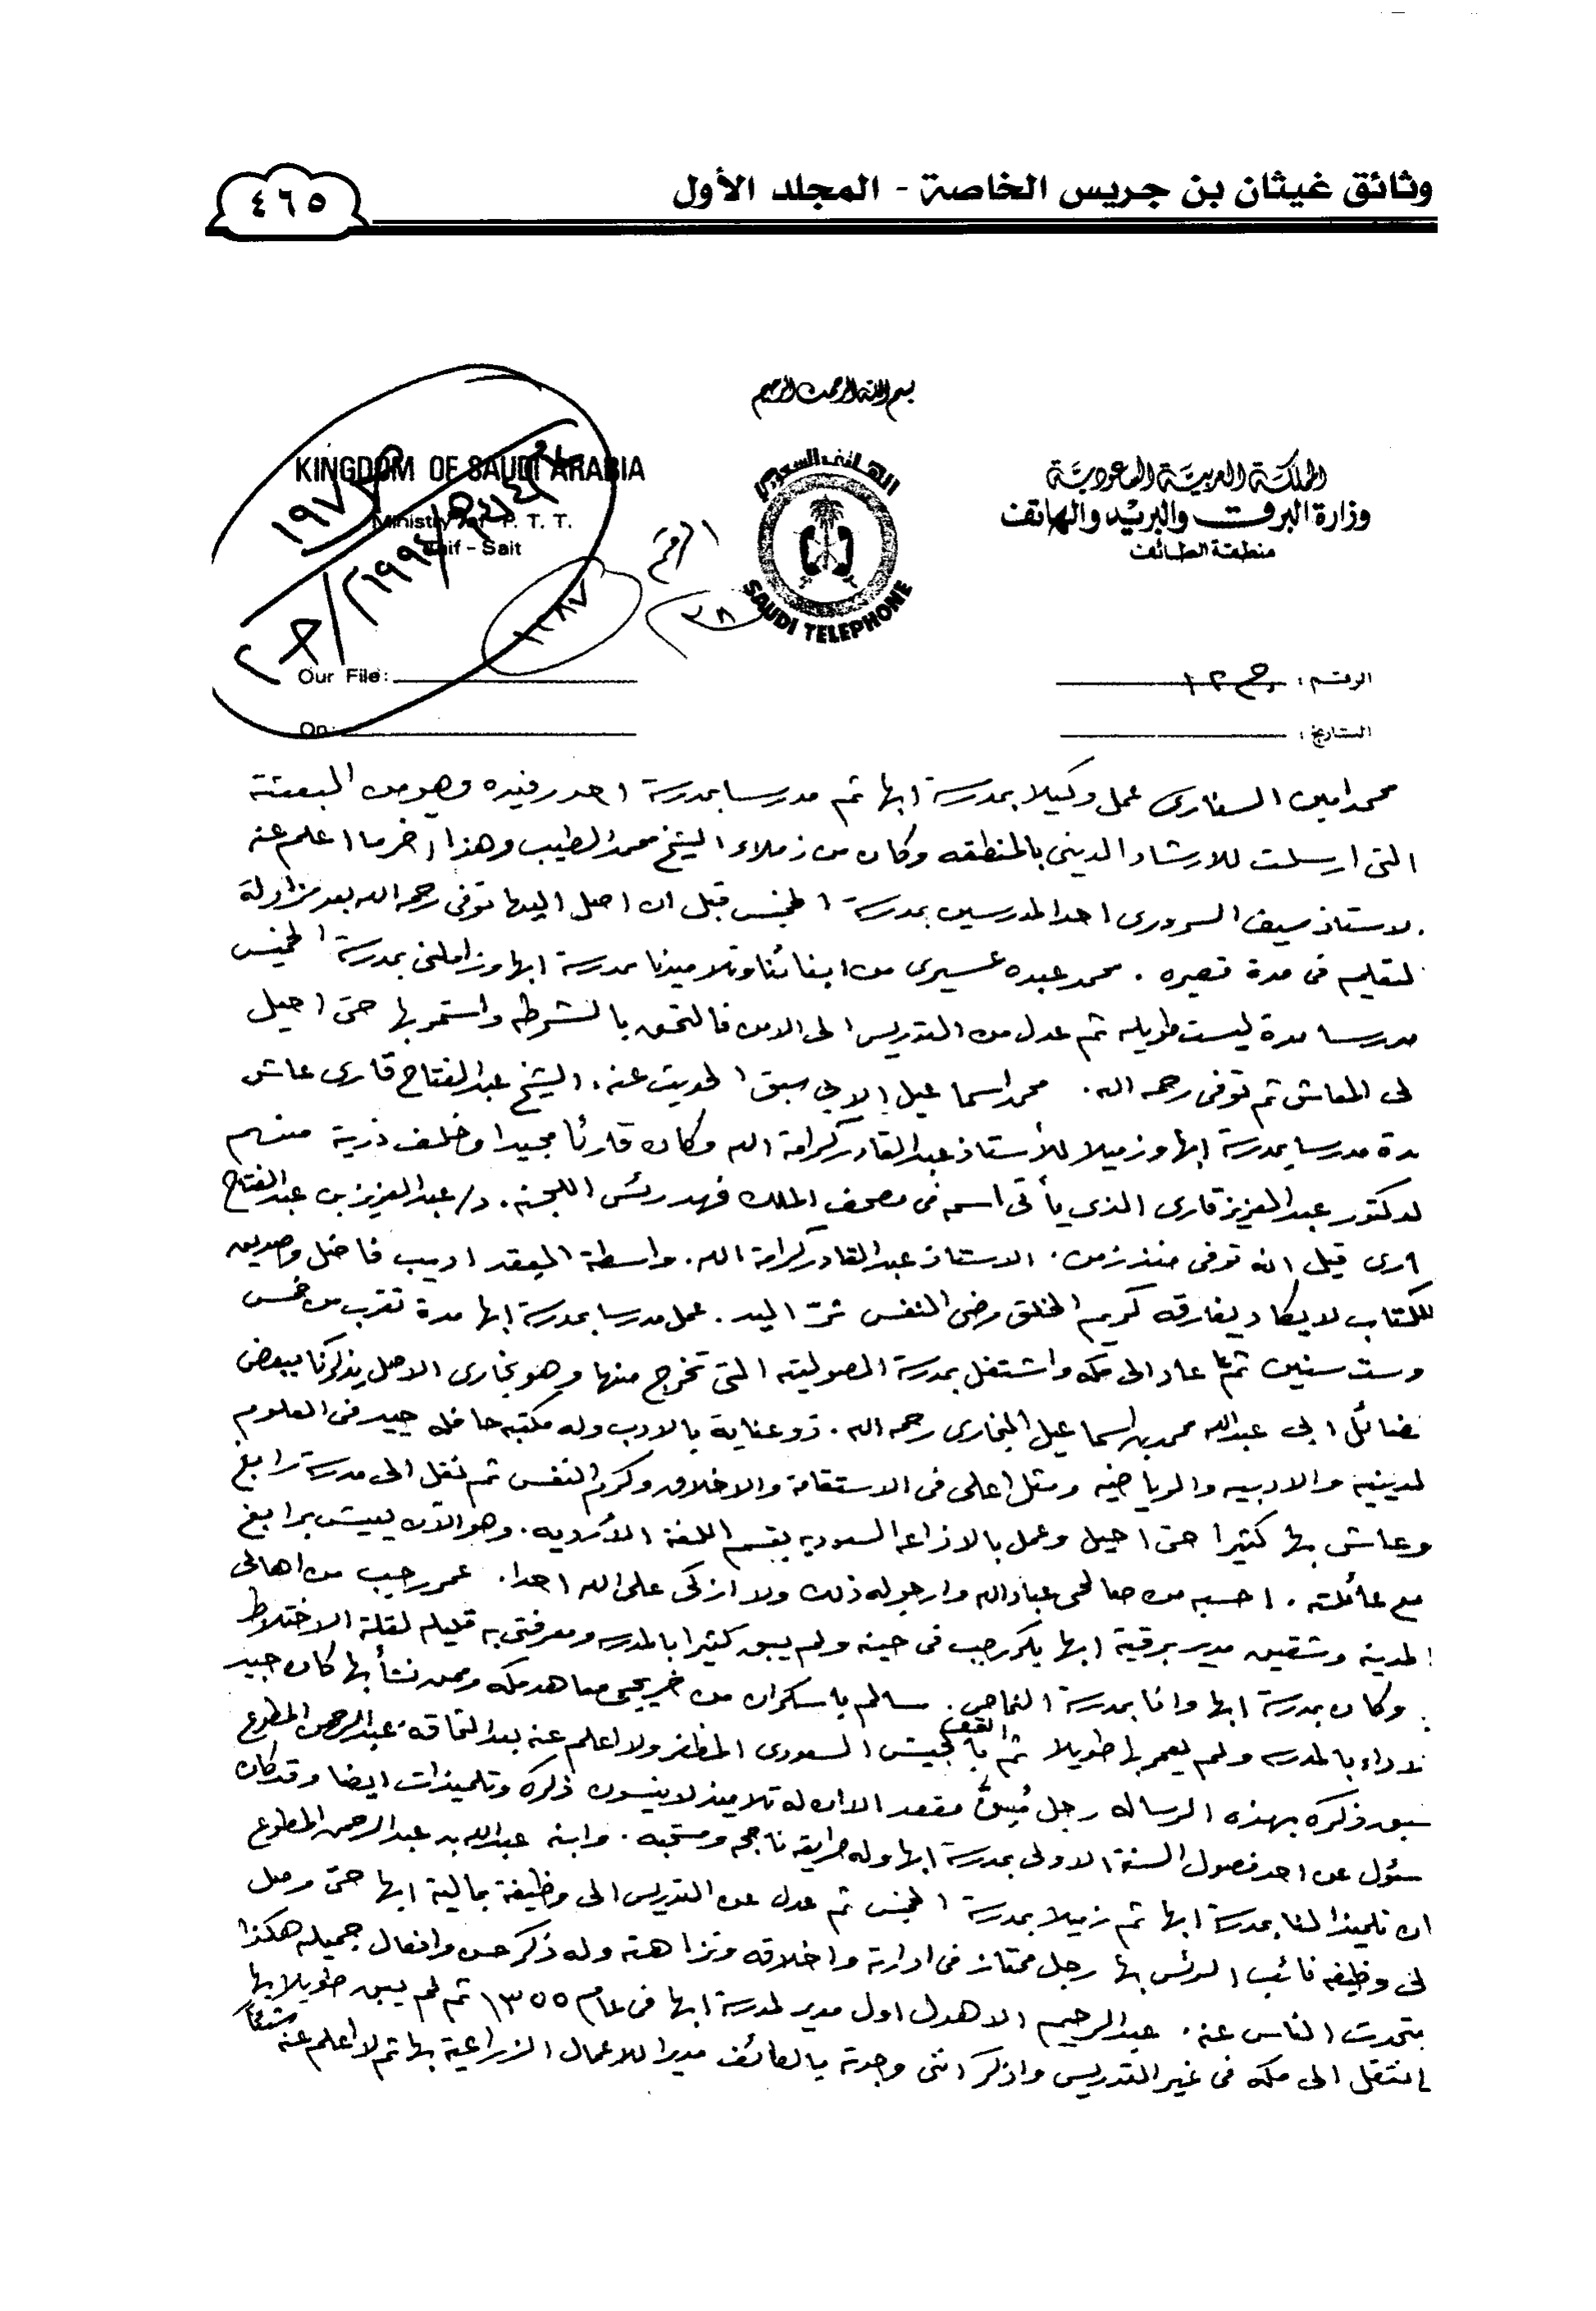 وثائق غيثان بن جريس الخاصة - المجلد الأول
٤٦٥
بسم الله الرحمن الرحيم
المملكة العربية السعودية
وزارة البرق والبريد والهاتف
منطقة الطائف
الهاتف السعودي
SAUDI TELEPHONE
KINGDOM OF SAUDI ARABIA
Ministry of P. T. T.
Taif - Sait
الرقم
٣٨
١٢٨٧
الرقم:
Our File:
التاريخ:
On:
محمد امين السناري عمل وكيلا بمدرسة ابها ثم مدرسا بمدرسة احد رفيده وهو من البعثة
التى ارسلت للارشاد الدينى بالمنطقه وكان من زملاء الشيخ محمد الطيب وهذا اخر ما اعلم عنه
لاستاذ سيف السرورى احد المدرسين بمدرسة الخميس قبل ان اصل اليها توفى رحمه الله بعد مزاولة
لتعليم فى مدة قصيره . محمد عبده عسيرى من ابنائنا وتلاميذنا بمدرسة ابها وزاملنى بمدرسة الخميس
مدرسا مدة ليست طويله ثم عدل من التدريس الى الامن فالتحق بالشرطه واستمر بها حتى احيل
لى المعاش ثم توفى رحمه الله . محمد اسماعيل الابي سبق الحديث عنه . الشيخ عبد الفتاح قارى عاش
مدة مدرسا بمدرسة ابها وزميلا للأستاذ عبد القادر كرامة الله وكان قارئا مجيدا وخلف ذرية منهم
لدكتور عبد العزيز قارى الذى يأتى اسمه فى مصحف الملك فهد رئس اللجنه . د/ عبد العزيز بن عبد الفتاح
ارى قيل انه توفى منذ زمن . الاستاذ عبد القادر كرامة الله . واسطة العقد اديب فاضل وصديق
للكتاب لا يكاد يفارقه كريم الخلق رضى النفس ثرّ اليد . عمل مدرسا بمدرسة ابها مدة تقرب من خمس
وست سنين ثم عاد الى مكه واشتغل بمدرسة الصولتيه التى تخرج منها وهو بخارى الاصل يذكرنا ببعض
فضائل ابى عبد الله محمد بن اسماعيل البخارى رحمه الله . ذو عناية بالادب وله مكتبه حافله جيد فى العلوم
لدينيه والادبيه والرياضيه ومثل اعلى فى الاستقامة والاخلاق وكرم النفس ثم نقل الى مدرسة رابغ
وعاش بها كثيرا حتى احيل وعمل بالاذاعه السعوديه بقسم اللغة الأرديه . وهو الآن يعيش برابغ
مع عائلته . احسبه من صالحى عباد الله وارجو له ذلك ولا ازكى على الله احدا . عمر رجب من اهالى
المدينه وشقيق مدير برقية ابها بكر رجب فى حينه ولم يبق كثيرا بالمدرسه ومعرفتى به قليله لقلة الاختلاط
وكان بمدرسة ابها وانا بمدرسة النماص . سالم باسكران من خريجى معاهد مكه وممن نشأ بها كان جيد
لاداء بالمدرسه ولم يعمر بها طويلا ثم التحق بالجيش السعودى المظفر ولا اعلم عنه بعد التحاقه . عبد الرحمن المطوع
سبق ذكره بهذه الرساله رجل مُسِنٌّ مقعد الا ان له تلاميذ لا ينسون ذكره وتلميذات ايضا وقد كان
سئول عن احد فصول السنة الاولى بمدرسة ابها وله طرايقه ناجحه ومحببه . وابنه عبد الله بن عبد الرحمن المطوع
ان تلميذا لنا بمدرسة ابها ثم زميلا بمدرسة الخميس ثم عدل عن التدريس الى وظيفة بمالية ابها حتى وصل
لى وظيفه نائب الرئس بها رجل ممتاز فى ادارته واخلاقه ونزاهته وله ذكر حسن وافعال جميله هكذا
يتحدث الناس عنه . عبد الرحيم الاهدل اول مدير لمدرسة ابها فى عام ١٣٥٥ ثم لم يبق طويلا بها
انتقل الى مكه فى غير التدريس واذكر انى وجدته بالطائف مديرا للاعمال الزراعية بها ثم لا اعلم عنه شيئاً